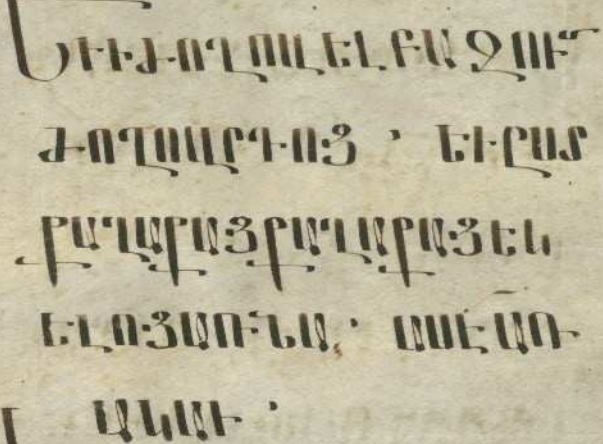 ԵՒԻԺՈՂՈՎԵԼ ԲԱԶՈՒ՟
ԺՈՂՈՎՐԴՈՑ ՝ ԵՒԸՍՏ
ՔԱՂԱՔԱՑՔԱՂԱՔԱՑԵԿ
ԵԼՈՑԱՌՆԱ ՝ ԱՍԷԱՌ
ԱԿԱՒ ՝